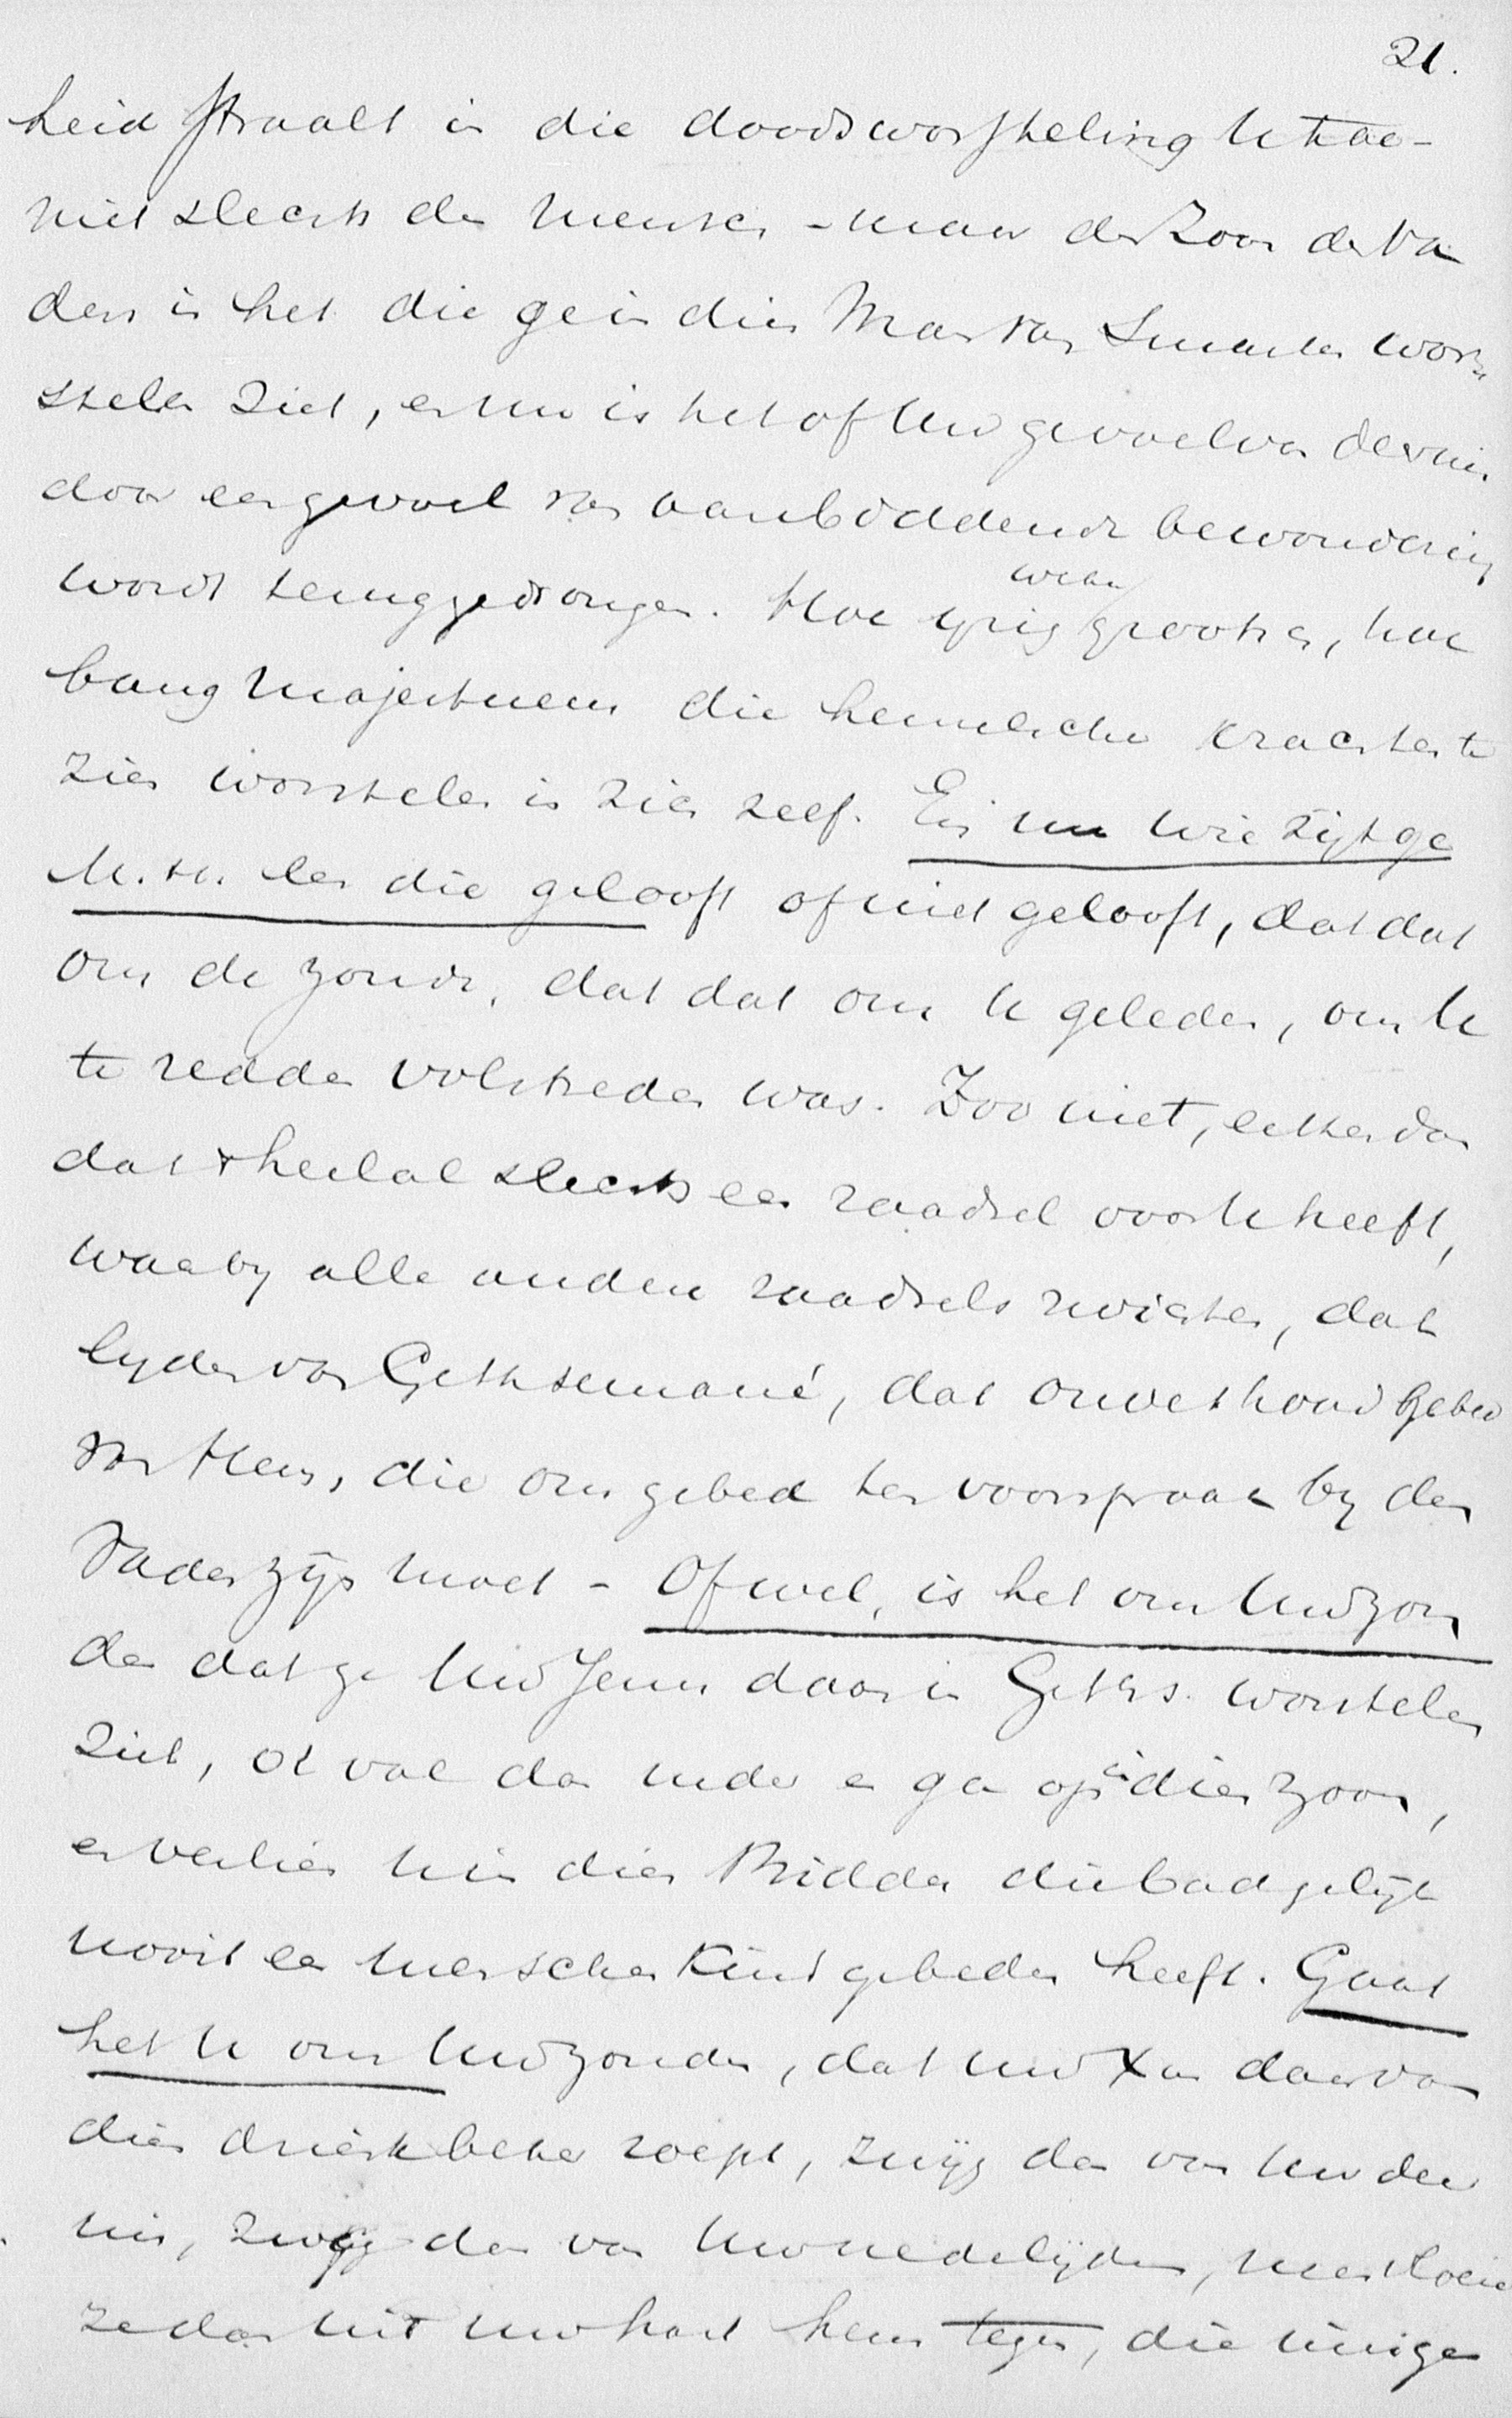 21.
heid straalt in die doodsworsteling U toe -
niet slechts de mensch - maar de Zoon des Va
ders is het die ge in dien Man van Smarten wor-
stelen ziet, en nu is het of Uw gevoel van
door een gevoel van aanbiddende bewondering
wordt teruggedrongen. Hoe grootsch, hoe
bang majestueus die hemelsche krachten te
zien worstelen in zich zelf. En nu wie zijt ge
M.H. een die gelooft of niet gelooft, dat dat
om de zonde, dat dat om U geleden, om U
te redden volstreden was. Zoo niet, dan
dat heelal slechts een raadsel voor U heeft,
waarby alle andere raadsels zwichten, dat
lyden van Gethsemané, dat onverhoord gebed
van Hem, die om gebed ten voorspraak by den
Vader zijn moet - Of wel, is het om Uw zon
den dat ge Uw Jezus daar in Geths. worstelen
ziet, o val dan neder en ga op in dien Zoon,
en verlies U in dien Bidder die bad gelijk
nooit een menschenkind gebeden heeft. Gaat
het U om Uw zonden, dat Uw X daar van
dien drinkbeker roept, zwijg dan van Uw dee
nis, zwijg dan van Uw medelijden, maar
ze dan uit Uw hart hem tegen, die innige